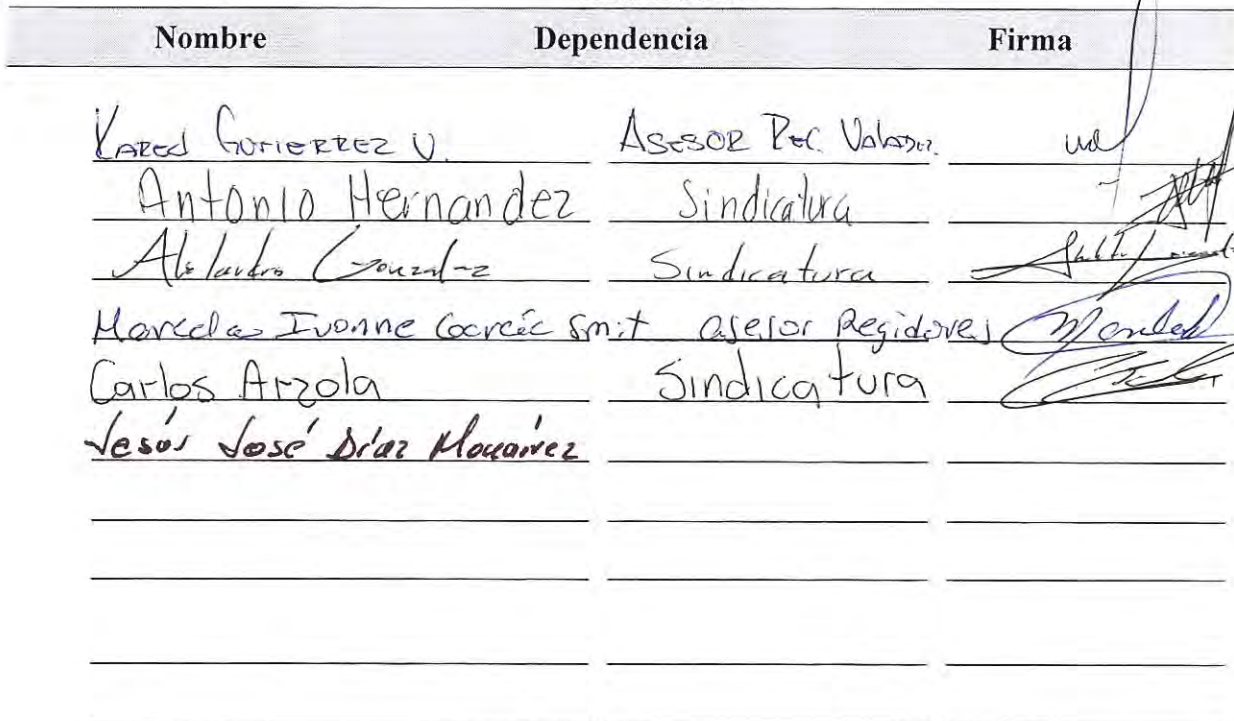 Nombre Dependencia Firma
Kared GUTIERREZ V. ASESOR REG.
Antonio Hernandez Sindicatura
Alejandro Gonzalez Sindicatura
Marcela Ivonne García Smit asesor Regidores
Carlos Arzola Sindicatura
Jesús José Díaz Monárrez